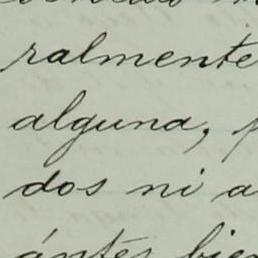 ralmente
alguna, p
dos ni a
ántes bien